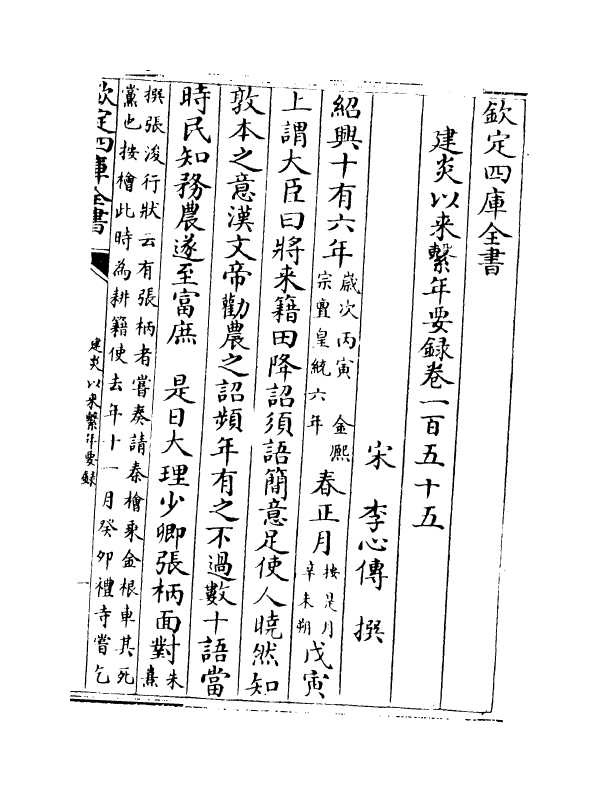 欽定四庫全書
建炎以来繫年要録卷一百五十五
宋 李心傳 撰
紹興十有六年歳次丙寅 金熈宗亶皇統六年春正月按是月辛未朔戊寅
上謂大臣曰將来籍田降詔須語簡意足使人曉然知
敦本之意漢文帝勸農之詔頻年有之不過數十語當
時民知務農遂至富庶 是日大理少卿張柄面對朱熹
撰張浚行狀云有張柄者嘗奏請秦檜乘金根車其死
黨也按檜此時為耕籍使去年十一月癸卯禮寺嘗乞
欽定四庫全書
建炎以来繫年要録
一